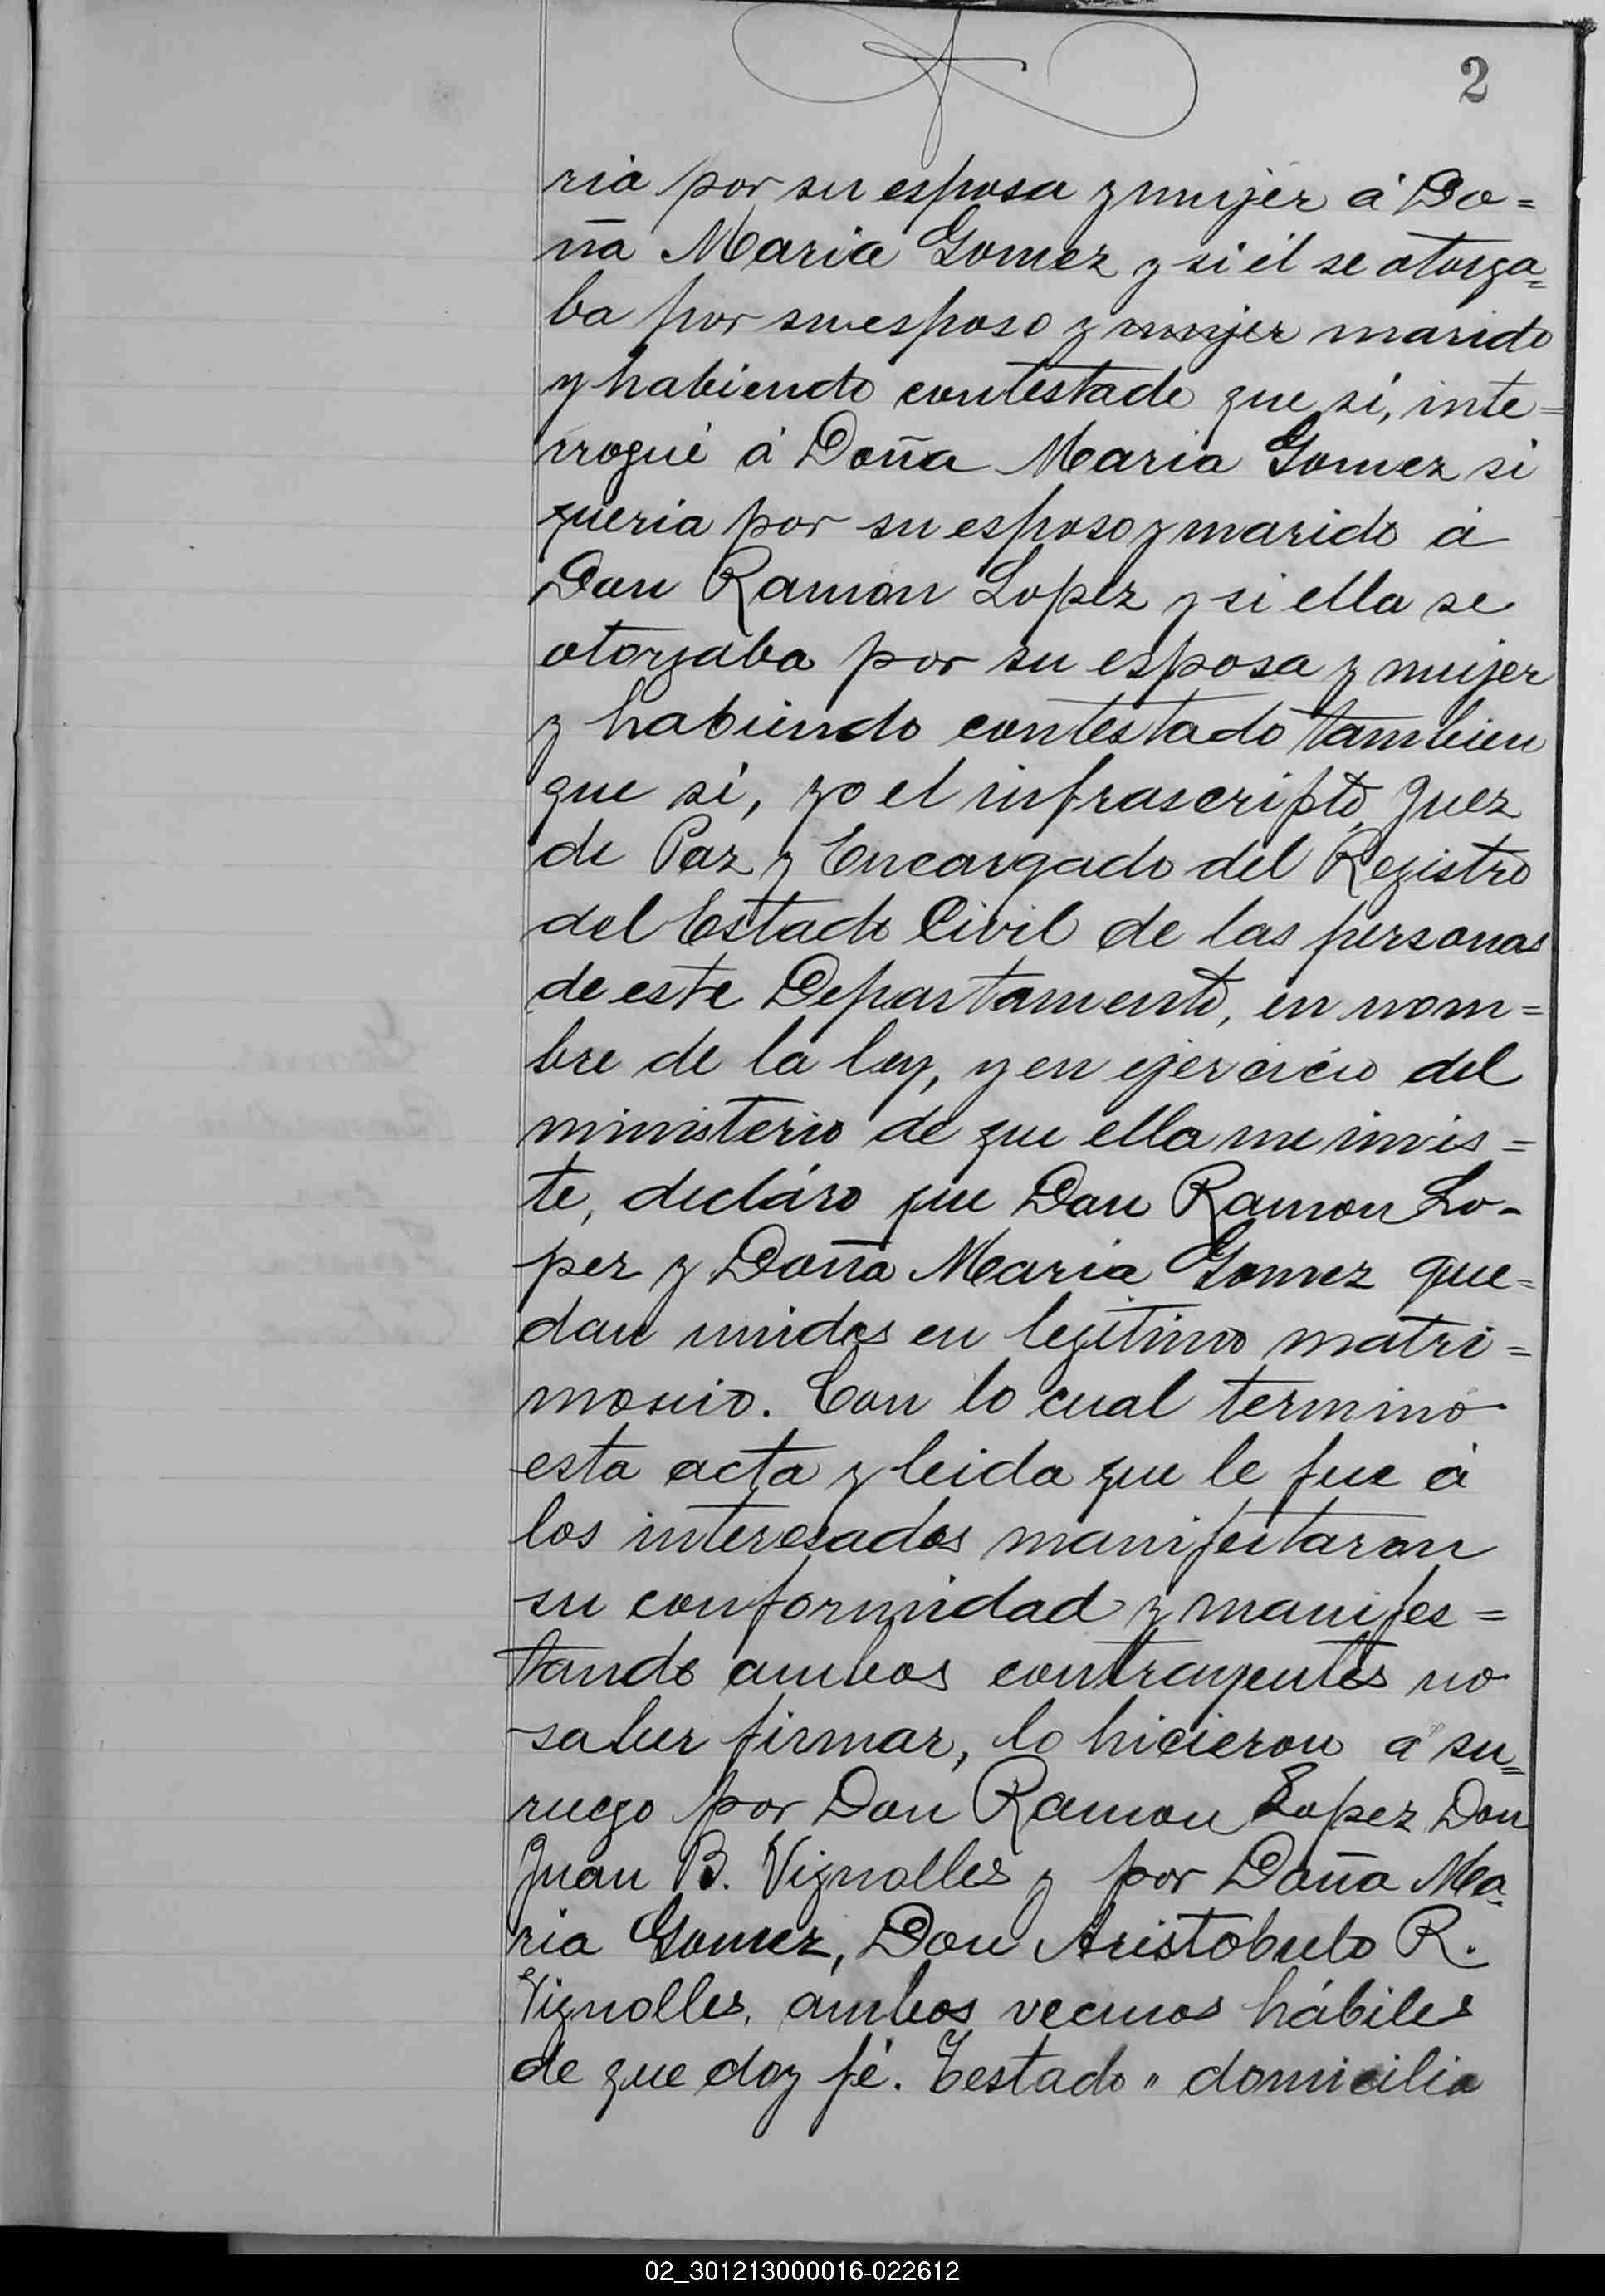 2
ria por su esposa y mujer á Do=
ña Maria Gomez y si él se otorga=
ba por su esposo y mujer marido
y habiendo contestado que sí, inte=
rrogué á Doña Maria Gomez si
queria por su esposo y marido á
Don Ramon Lopez y si ella se
otorgaba por su esposa y mujer
y habiendo contestado tambien
que sí, yo el infrascripto, Juez
de Paz y Encargado del Registro
del Estado Civil de las personas
de este Departamento, en nom=
bre de la ley, y en ejercicio del
ministerio de que ella me invis=
te, decláro que Don Ramon Lo-
pez y Doña Maria Gomez que=
dan unidos en legitimo matri=
monio. Con lo cual terminó
esta acta y leida que le fue á
los interesados manifestaron
su conformidad y manifes=
tando ambos contrayentes no
saber firmar, lo hicieron a su=
ruego por Don Ramon Lopez Don
Juan B. Vignolles y por Doña Ma=
ria Gomez, Don Aristobulo R.
Vignolles, ambos vecinos hábiles
de que doy fé. Testado " domicilia
02_301213000016-022612